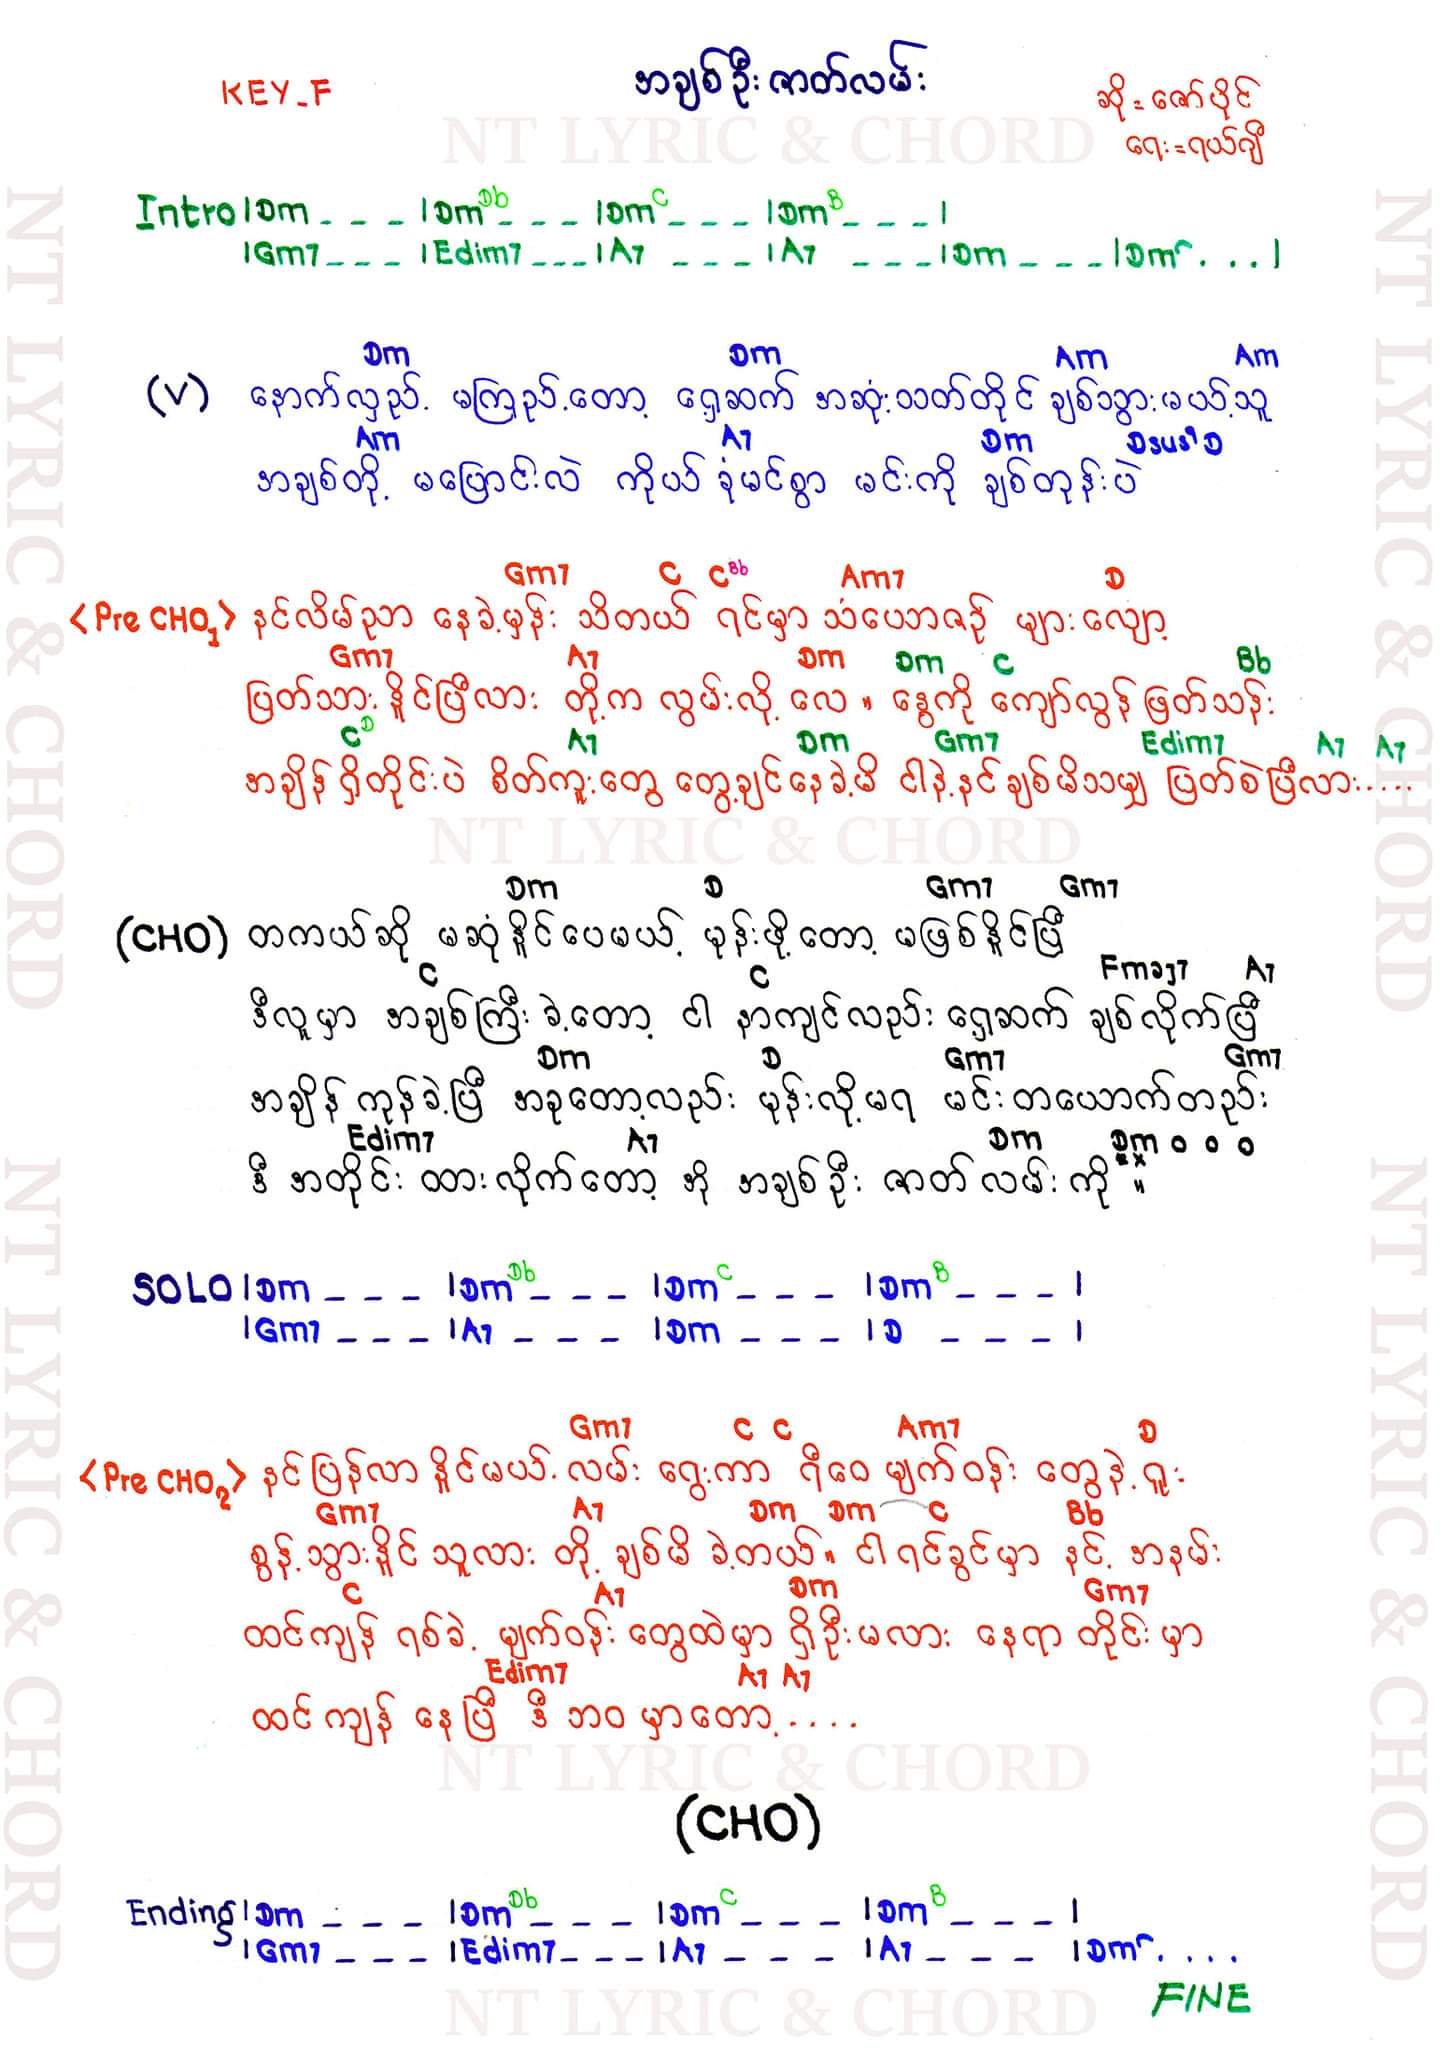 KEY_F
အချစ်ဦးဇာတ်လမ်း
ဆို = ဇော်ပိုင်
ရေး = ရယ်ဂျီ
NT LYRIC & CHORD
Intro |Dm _ _ _ |Dm Db _ _ _ |Dm C _ _ _ |Dm B _ _ _ |
|Gm7 _ _ _ |Edim7 _ _ _ |A7 _ _ _ |A7 _ _ _ |Dm _ _ _ |Dm . . . |
Dm Dm Am Am
(V) နောက်လှည့် မကြည့်တော့ ရှေ့ဆက် အဆုံးသတ်တိုင် ချစ်သွားမယ့်သူ
Am A7 Dm Dsus4 D
အချစ်တို့ မပြောင်းလဲ ကိုယ် ခုံမင်စွာ မင်းကို ချစ်တုန်းပဲ
Gm7 C C Bb Am7 D
<Pre CHO1> နင်လိမ်ညာ နေခဲ့မှန်း သိတယ် ရင်မှာ သံယောဇဉ် များလျော့
Gm7 A7 Dm Dm C Bb
ပြတ်သားနိူင်ပြီလား တို့က လွမ်းလို့ လေ။ နွေကို ကျော်လွန် ဖြတ်သန်း
C D A7 Dm Gm7 Edim7 A7 A7
အချိန် ရှိတိုင်းပဲ စိတ်ကူးတွေ တွေ့ချင်နေခဲ့မိ ငါနဲ့နင် ချစ်မိသမျှ ပြတ်စဲပြီလား.....
NT LYRIC & CHORD
Dm D Gm7 Gm7
(CHO) တကယ်ဆို မဆုံနိူင်ပေမယ့် မုန်းဖို့တော့ မဖြစ်နိူင်ပြီ
C C Fmaj7 A7
ဒီလူမှာ အချစ်ကြီးခဲ့တော့ ငါ နာကျင်လည်း ရှေ့ဆက် ချစ်လိုက်ပြီ
Dm D Gm7 Gm7
အချိန် ကုန်ခဲ့ပြီ အခုတော့လည်း မုန်းလို့မရ မင်းတယောက်တည်း
Edim7 A7 Dm Dm o o o
ဒီ အတိုင်း ထားလိုက်တော့ အို အချစ်ဦး ဇာတ်လမ်းကို ။
SOLO |Dm _ _ _ |Dm Db _ _ _ |Dm C _ _ _ |Dm B _ _ _ |
|Gm7 _ _ _ |A7 _ _ _ |Dm _ _ _ |D _ _ _ |
Gm7 C C Am7 D
<Pre CHO2> နင်ပြန်လာ နိူင်မယ့် လမ်း ငွေးကာ ရီဝေ မျက်ဝန်း တွေနဲ့ ရူး
Gm7 A7 Dm Dm C Bb
စွန့်သွားနိူင်သူလား တို့ ချစ်မိ ခဲ့တယ်။ ငါ ရင်ခွင်မှာ နင့် အနမ်း
C A7 Dm Gm7
ထင်ကျန် ရစ်ခဲ့ မျက်ဝန်းတွေထဲမှာ ရှိဦးမလား နေရာ တိုင်းမှာ
Edim7 A7 A7
ထင်ကျန် နေပြီ ဒီ ဘဝ မှာတော့....
NT LYRIC & CHORD
(CHO)
Ending |Dm _ _ _ |Dm Db _ _ _ |Dm C _ _ _ |Dm B _ _ _ |
|Gm7 _ _ _ |Edim7 _ _ _ |A7 _ _ _ |A7 _ _ _ |Dm . . . .
FINE
NT LYRIC & CHORD
NT LYRIC & CHORD
NT LYRIC & CHORD
NT LYRIC & CHORD
NT LYRIC & CHORD